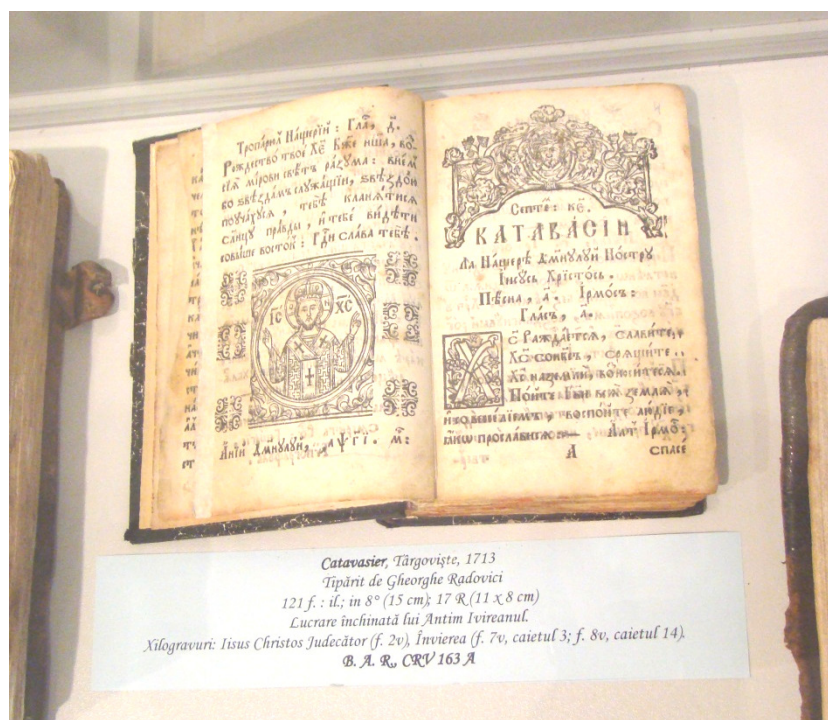 Тропарꙋл Нащерїй : Гла҃, д҃.
Рождество̀ твоѐ Хе҃ Бж҃е нш҃ъ, во҆-
сїѧ̀ мірови свѣ́тъ ра́зума :
бо ѕвѣзда́мъ слꙋжа́щїи, ѕвѣздо́ю
поꙋча́хꙋсѧ, тебѣ̀ кла́нѧтисѧ
сл҃нцꙋ пра́вды, и тебѐ ви́дѣти
восто́къ : Гд҇и сла́ва тебѣ̀.
І҃С Х҃С
Дмнꙋлꙋй, ҂аѱгі. м҃:
Септе҃: ке҃.
КАТАВАСІИ
Ла Нащерѣ Дмнꙋлꙋй Нострꙋ
І҆исꙋсь Хрїсто́сь.
Пѣснь, а҃. І҆рмо́съ:
Гла́съ, а҃.
Х҃С Ражда́етсѧ, сла́вите,
Х҃С , срѧ́щите.
Х҃С на землѝ, возноси́тесѧ.
По́йте Гдв҇и всѧ̀ землѧ̀,
и воспо́йте лю́дїе,
ꙗ҆́кѡ просла́висѧ. А҆лт І҆рмо҃с:
А спасѐ
Catavasier, Târgoviște, 1713
Tipărit de Gheorghe Radovici
121 f. : il.; in 8° (15 cm); 17 R (11 x 8 cm)
Lucrare închinată lui Antim Ivireanul.
Xilogravuri: Iisus Christos Judecător (f. 2v), Învierea (f. 7v, caietul 3; f. 8v, caietul 14).
B. A. R., CRV 163 A